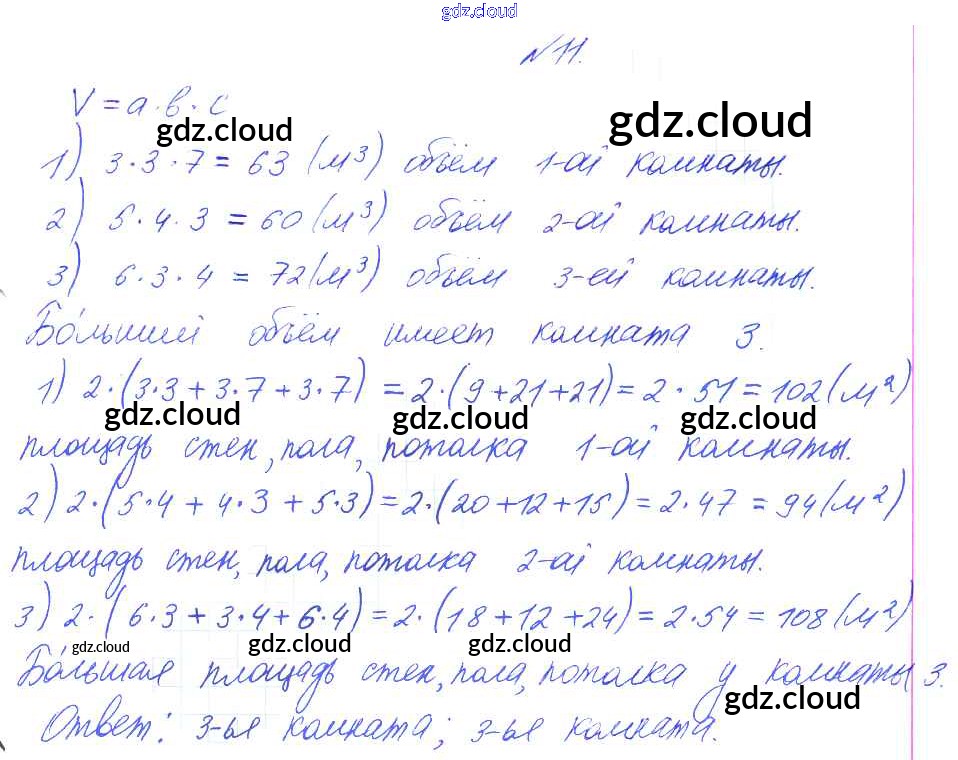 gdz.cloud
№11.
V = a·b·c
gdz.cloud
gdz.cloud
1) 3·3·7 = 63 (м³) объём 1-ой комнаты.
2) 5·4·3 = 60 (м³) объём 2-ой комнаты.
3) 6·3·4 = 72 (м³) объём 3-ей комнаты.
Бо́льший объём имеет комната 3.
1) 2·(3·3+3·7+3·7) = 2·(9+21+21) = 2·51 = 102 (м²)
gdz.cloud gdz.cloud gdz.cloud
площадь стен, пола, потолка 1-ой комнаты.
2) 2·(5·4+4·3+5·3) = 2·(20+12+15) = 2·47 = 94 (м²)
площадь стен, пола, потолка 2-ой комнаты.
3) 2·(6·3+3·4+6·4) = 2·(18+12+24) = 2·54 = 108 (м²)
gdz.cloud gdz.cloud gdz.cloud
Бо́льшая площадь стен, пола, потолка у комнаты 3.
gdz.cloud
Ответ: 3-ья комната; 3-ья комната.